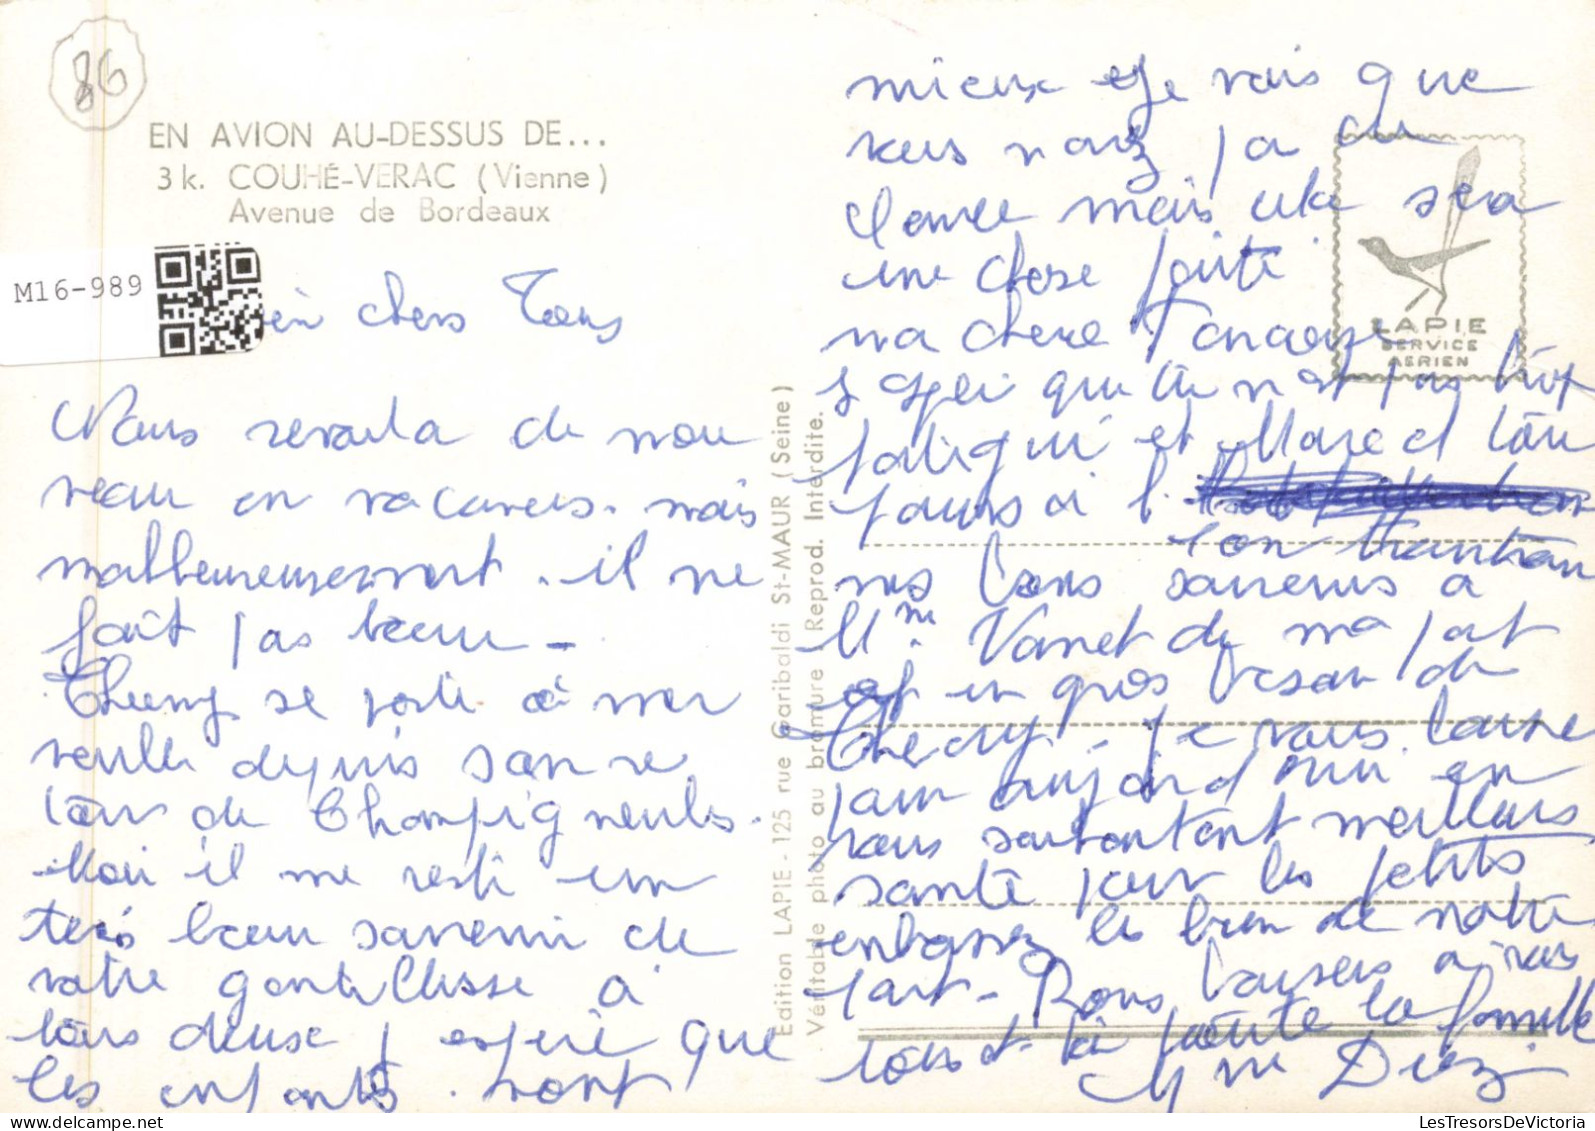 86
EN AVION AU-DESSUS DE...
3 k. COUHÉ-VERAC (Vienne)
Avenue de Bordeaux
M16-989
chers Tous
Nous revoila de nou
veau en vacances. mais
malheureusement. il ne
fait pas beau -
Thierry se porte a mer
veille depuis son re
tour de Champigneulles.
Moi il me reste un
très beau souvenir de
votre gentillesse a
tous deux j espère que
les enfants. vont
Edition LAPIE - 125 rue Garibaldi St-MAUR (Seine)
Véritable photo au bromure Reprod. Interdite.
LAPIE
SERVICE
AERIEN
mieux et je vois que
vous navez pa eu
mais cela sera
une chose faite
ma chere
j espei que tu n est pas trop
fatigué et Marcel tou
jours a
son
mes bons souvenirs a
Mme Vanet de ma part
et un gros de
Thierry, je vous laisse
pour aujord hui en
vous souhaitant meilleurs
santé pour les petits
embrassez les bien de notre
part - Bons baisers a vous
tous et a toute la famille
Mme Diez
LesTresorsDeVictoria